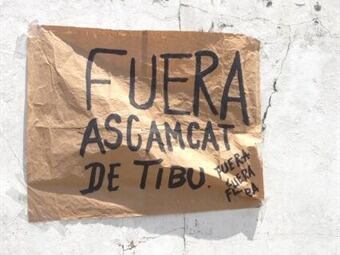 FUERA
ASCAMCAT
DE TIBU.
FUERA
FUERA